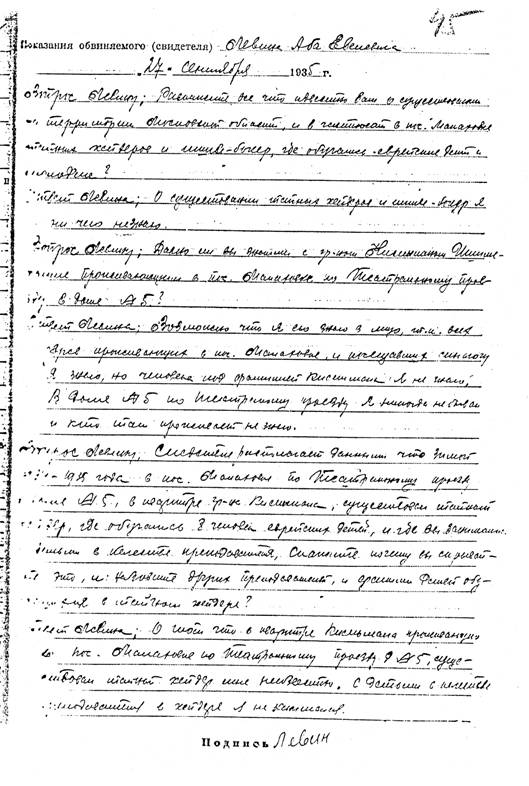 45
Показания обвиняемого (свидетеля) Левина Аба Евелевича
„27“ сентября 1935 г.
Вопрос Левину; Расскажите все что известно вам о существовании
на территории Московской области, и в частности в пос. Малаховке
тайных хейдеров и , где обучались еврейские дети и
молодежь?
Ответ Левина; О существовании тайных хейдеров и я
ни чего не знаю.
Вопрос Левину; Давно ли вы знакомы с гр-ном
проживающим в пос. Малаховке по Театральному проез-
ду в доме №5?
Ответ Левина; Возможно что я его знаю в лицо, т.к. всех
проживающих в пос. Малаховке, и посещавших синагогу
я знаю, но человека под фамилией я не знаю,
В доме №5 по Театральному проезду я никогда не бывал
и кто там проживает не знаю.
Вопрос Левину; Следствие располагает данными что зимой
1935 года в пос. Малаховке по Театральному проезду
в доме №5, в квартире гр-на , существовал тайный
хейдер, где обучались 8 человек еврейских детей, и где вы занимались
с детьми в качестве преподавателя, Скажите почему вы скрывает-
те это, и назовите других преподавателей, и фамилии детей обу-
в тайном хейдере?
Ответ Левина; О том что в квартире Кисельмана проживающего
в пос. Малаховке по Театральному проезду №5, сущес-
твовал тайный хейдер мне неизвестно, с детьми в качестве
преподавателя в хейдере я не занимался.
Подпись Левин